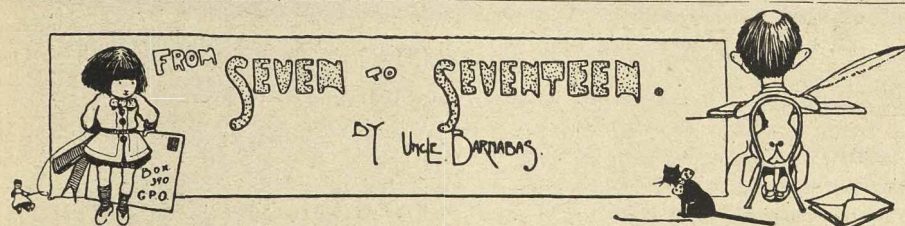 FROM SEVEN TO SEVENTEEN.
BY UNCLE BARNABAS.
BOX
390
G.P.O.